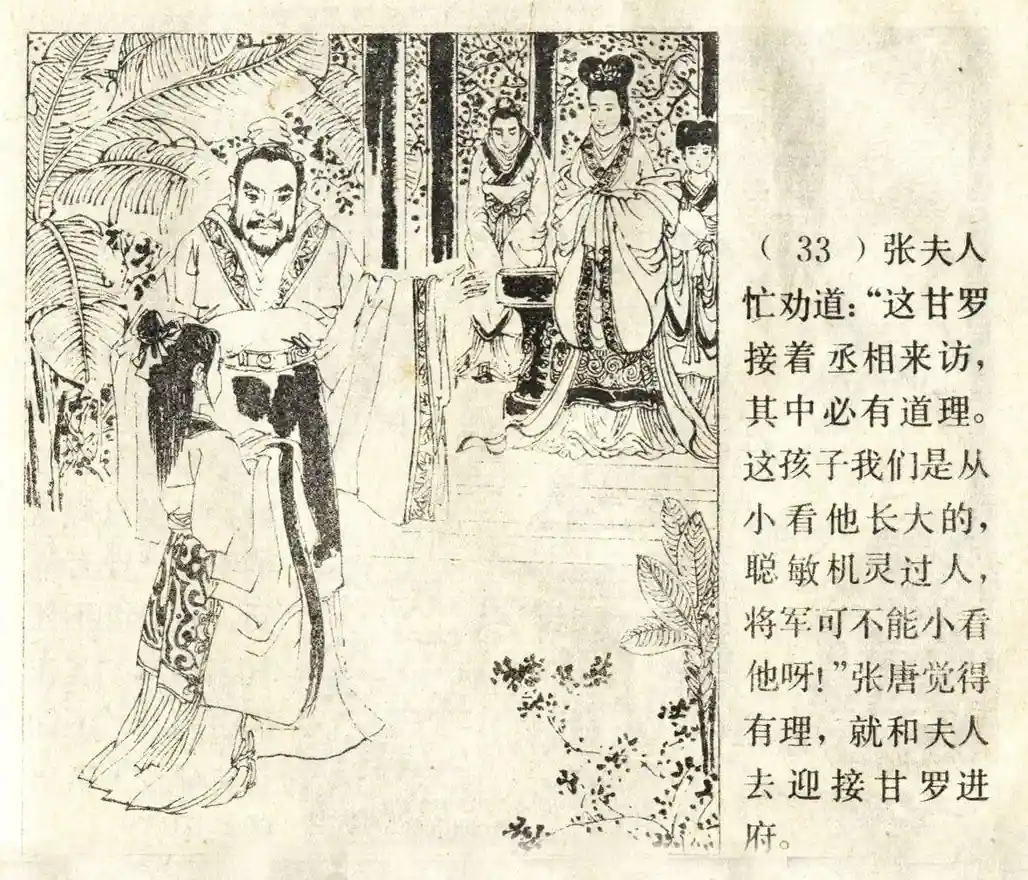 （33）张夫人
忙劝道：“这甘罗
接着丞相来访，
其中必有道理。
这孩子我们是从
小看他长大的，
聪敏机灵过人，
将军可不能小看
他呀！”张唐觉得
有理，就和夫人
去迎接甘罗进
府。